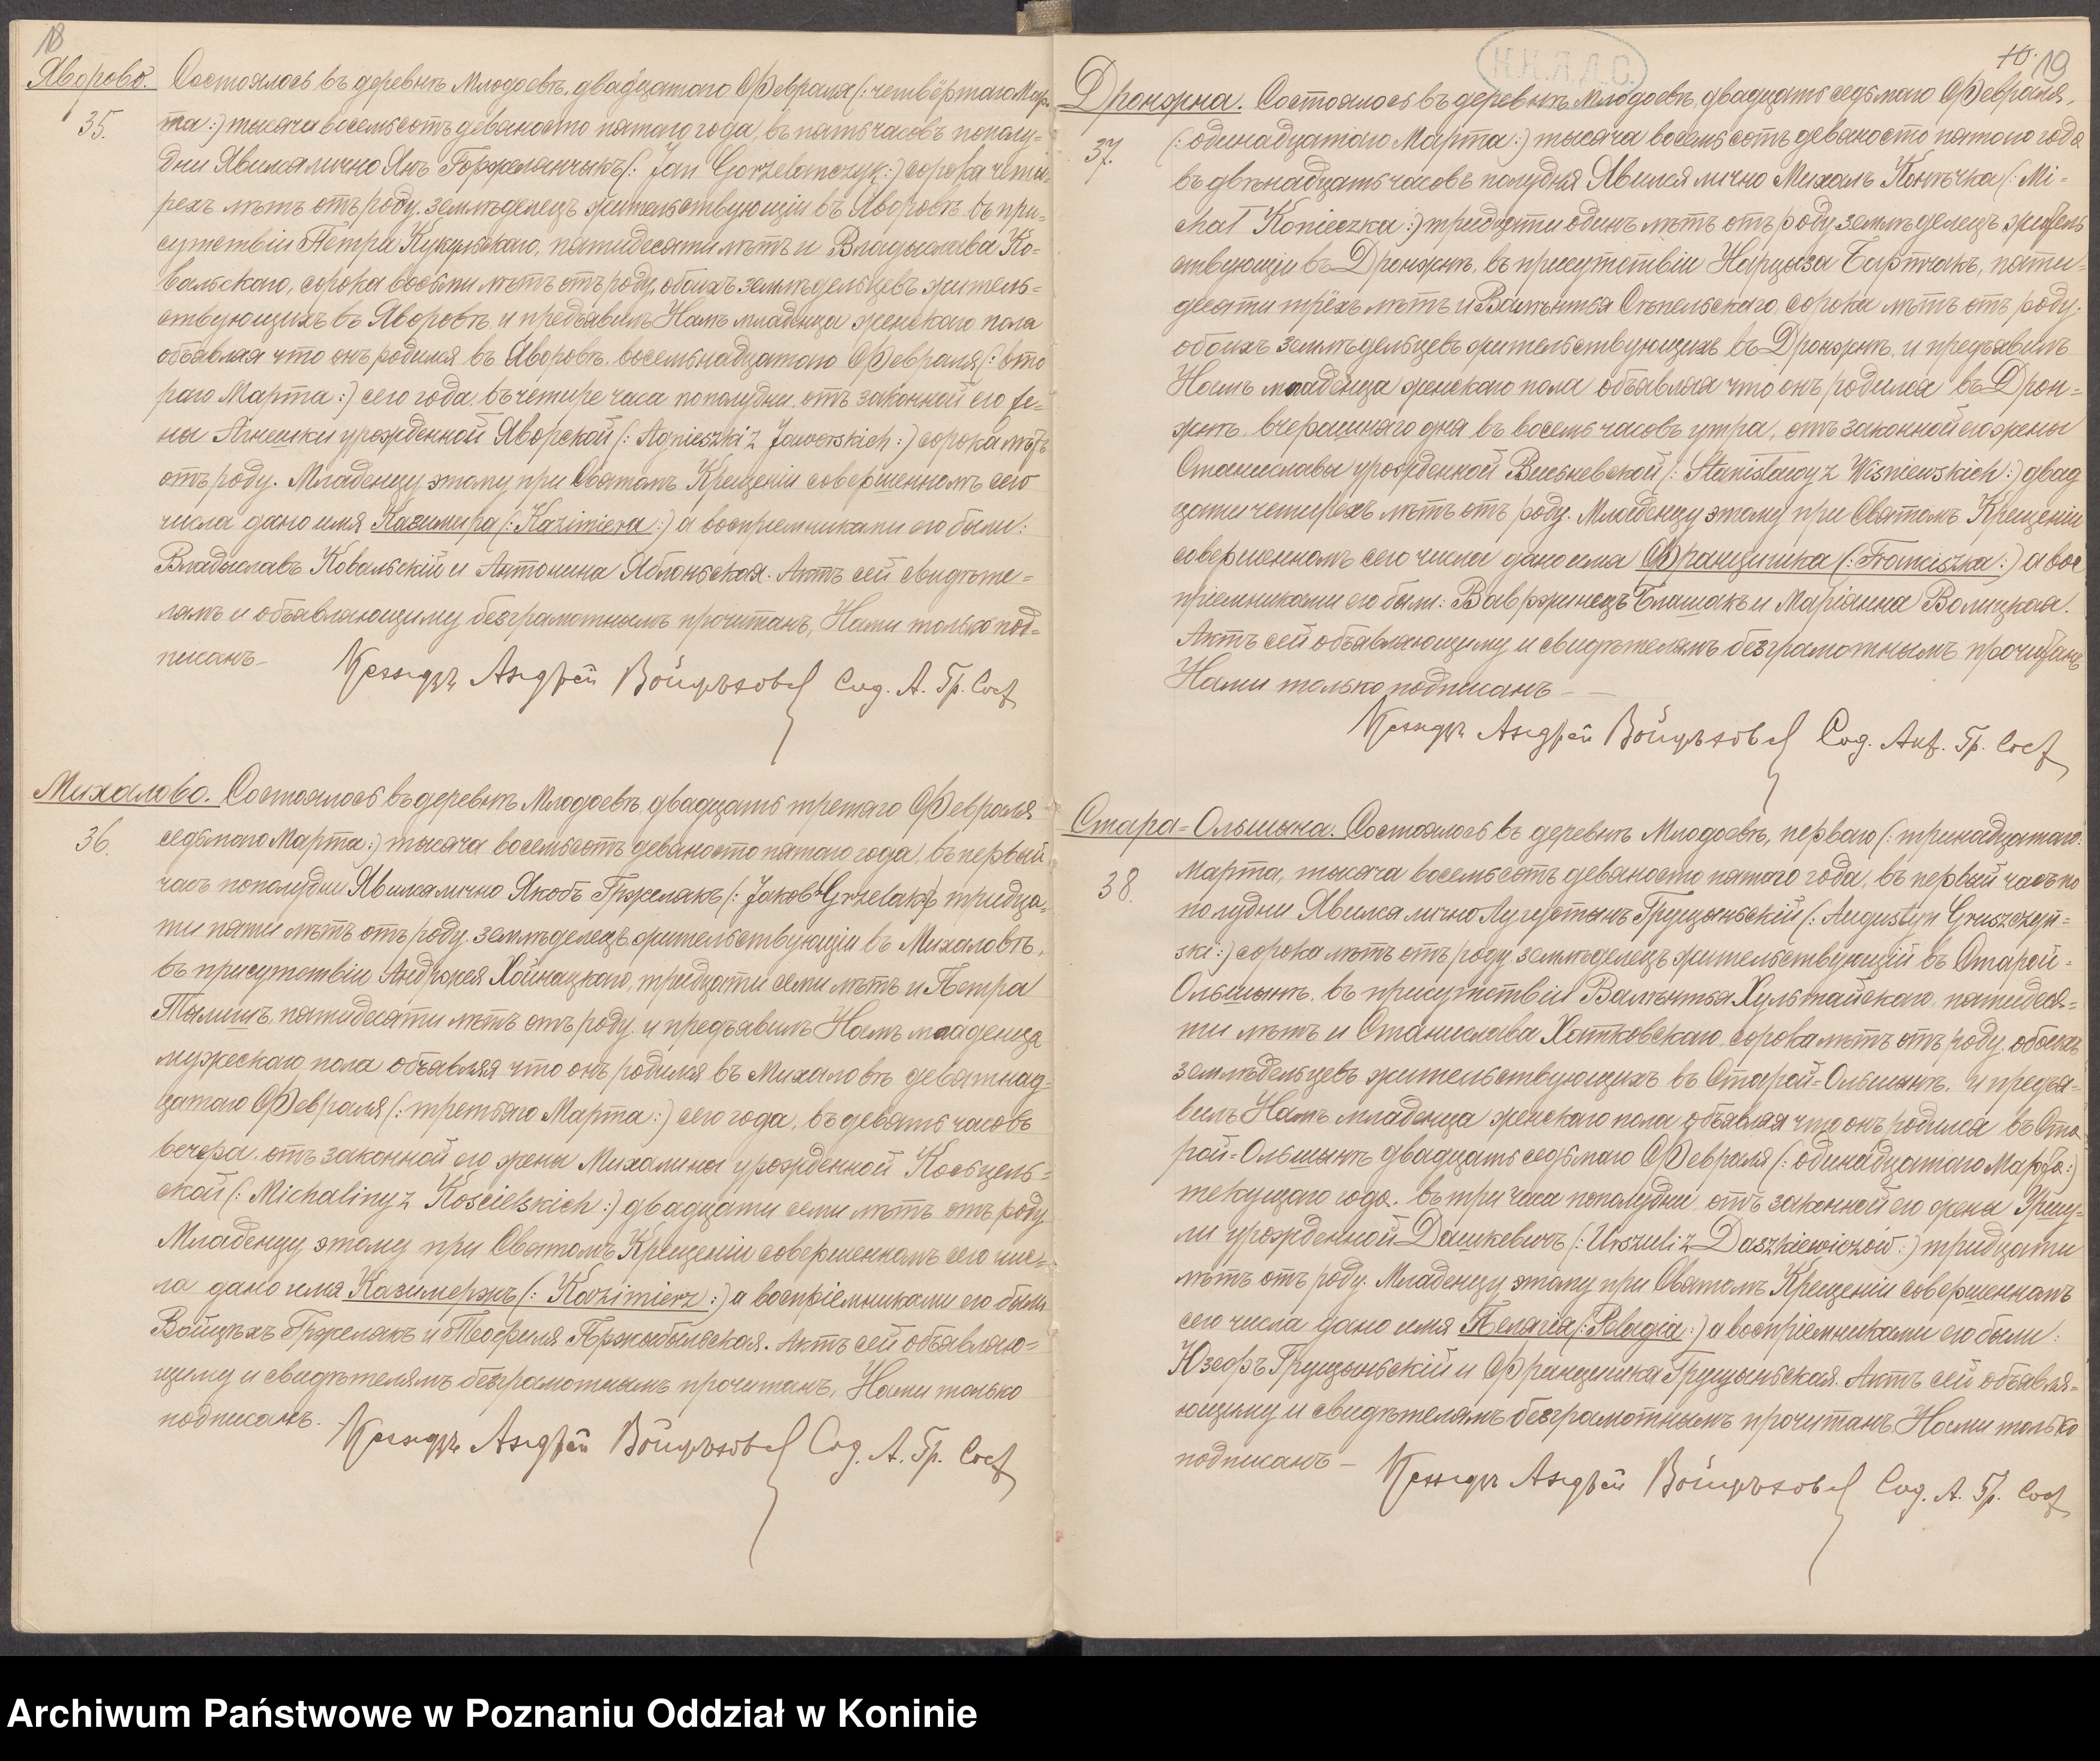 18
Яворово. Состоялось въ деревнѣ Млодоевѣ, двадцатого Февраля (: четвёртаго Мар-
35. та :) тысяча восемьсотъ девяносто пятого года, въ пять часовъ пополу-
дни Явился лично Янъ Горжеланчыкъ (: Jan Gorzelanczyk :) сорока четы-
рехъ лѣтъ отъ роду, земледѣлецъ жительствующій въ Яворовѣ въ при-
сутствіи Петра Кукульскаго, пятидесяти лѣтъ и Владыслава Ко-
вальскаго, сорока восьми лѣтъ отъ роду, обоихъ землѣдельцевъ житель-
ствующихъ въ Яворовѣ, и предъявилъ Намъ младенца женскаго пола
объявляя что онъ родился въ Яворовѣ, восемьнадцатого Февраля (: вто
раго Марта :) сего года, въ четыре часа пополудни, отъ законной его же-
ны Агнешки урожденной Яворской (: Agnieszki z Jaworskich :) сорока лѣтъ
отъ роду. Младенцу этому при Святомъ Крещеніи совершенномъ сего
числа дано имя Казимира (: Kazimiera :) а воспріемниками его были:
Владыславъ Ковальскій и Антонина Яблоньская. Актъ сей свидѣте-
лямъ и объявляющиму безграмотнымъ прочитанъ, Нами только под-
писанъ
Ксендзъ Андрей Сод. А. Гр. Сост
Михалово. Состоялось въ деревнѣ Млодоевѣ, двадцать третяго Февраля
36. седьмого Марта :) тысяча восемьсотъ девяносто пятого года, въ первый
часъ пополудни Явился лично Якобъ Гржелакъ (: Jakob Grzelak :) тридца-
ти пяти лѣтъ отъ роду, землѣделецъ жительствующій въ Михаловѣ,
въ присутствіи Анджея Хойнацкаго, тридцати семи лѣтъ и Петра
пятидесяти лѣтъ отъ роду, и предъявилъ Намъ младенца
мужескаго пола объявляя что онъ родился въ Михаловѣ девятнад-
цатаго Февраля (: третьяго Марта :) сего года, въ девять часовъ
вечера, отъ законной его жены Михалины урожденной Косьцель-
ской (: Michaliny z Kościelskich :) двадцати семи лѣтъ отъ роду
Младенцу этому при Святомъ Крещеніи совершенномъ сего чис-
ла дано имя Казимержъ (: Kazimierz :) а воспріемниками его были
Войцѣхъ Гржелакъ и Теофиля Пржыбыльская. Актъ сей объявляю-
щиму и свидѣтелямъ безграмотнымъ прочитанъ, Нами только
подписанъ.
Ксендзъ Андрей Сод. А. Гр. Сост
10. 19
Дронжна. Состоялось въ деревнѣ Млодоевѣ, двадцать седьмаго Февраля,
37. (: одинадцатаго Марта :) тысяча восемьсотъ девяносто пятого года
въ двѣнадцать часовъ полудня Явился лично Михалъ Конѣчка (: Mi-
chał Konieczka :) тридцати одинъ лѣтъ отъ роду, землѣделецъ житель
ствующій въ Дронжнѣ, въ присутствіи Нарцыза Бартчакъ, пяти-
десяти трёхъ лѣтъ и Валѣнтья Стѣпельскаго, сорока лѣтъ отъ роду,
обоихъ землѣдельцевъ жительствующихъ въ Дронжнѣ, и предъявилъ
Намъ младенца женскаго пола объявляя что онъ родился въ Дрон-
жнѣ, вчерашняго дня въ восемь часовъ утра, отъ законной его жены
Станиславы урожденной Висьневской (: Stanisławy z Wisniewskich :) двад
цати четырехъ лѣтъ отъ роду. Младенцу этому при Святомъ Крещеніи
совершенномъ сего числа дано имя Францишка (: Franciszka :) а вос
пріемниками его были: Вавржинецъ Блашакъ и Маріянна Волицкая.
Актъ сей объявляющиму и свидѣтелямъ безграмотнымъ прочитанъ
Нами только подписанъ
Ксендзъ Андрей Сод. Акт. Гр. Сост
Стара-Ольшына. Состоялось въ деревнѣ Млодоевѣ, перваго (: тринадцатаго:
38. Марта, тысяча восемьсотъ девяносто пятого года, въ первый часъ по
полудни Явился лично Аугустынъ Грущыньскій (: Augustyn Gruszczyń-
ski :) сорока лѣтъ отъ роду, землѣделецъ жительствующій въ Старой-
Ольшынѣ, въ присутствіи Валѣнтья Хульпайскаго, пятидеся-
ти лѣтъ и Станислава Хатковскаго, сорока лѣтъ отъ роду, обоихъ
землѣдельцевъ жительствующихъ въ Старой-Ольшынѣ, и предъя-
вилъ Намъ младенца женскаго пола объявляя что онъ родился въ Ста
рой-Ольшынѣ двадцать седьмаго Февраля (: одинадцатаго Марта :)
текущаго года, въ три часа пополудни, отъ законной его жены Уршу-
ли урожденной Дашкевичъ (: Urszuli z Daszkiewiczów :) тридцати
лѣтъ отъ роду. Младенцу этому при Святомъ Крещеніи совершенномъ
сего числа дано имя Пелагія (: Pelagia :) а воспріемниками его были:
Юзефъ Грущыньскій и Францишка Грущыньская. Актъ сей объявля-
ющиму и свидѣтелямъ безграмотнымъ прочитанъ, Нами только
подписанъ
Ксендзъ Андрей Сод. А. Гр. Сост
Archiwum Państwowe w Poznaniu Oddział w Koninie